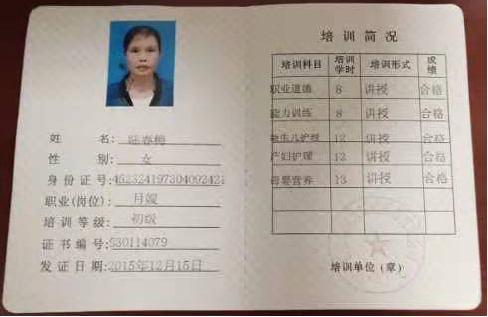 姓 名: 陆春梅
性 别: 女
身份证号: 452324197304092424
职业(岗位): 月嫂
培训等级: 初级
证书编号: S30114079
发证日期: 2015年12月15日
培训简况
培训科目 培训学时 培训形式 成绩
职业道德 8 讲授 合格
能力训练 8 讲授 合格
新生儿护理 12 讲授 合格
产妇护理 12 讲授 合格
母婴营养 13 讲授 合格
培训单位(章)